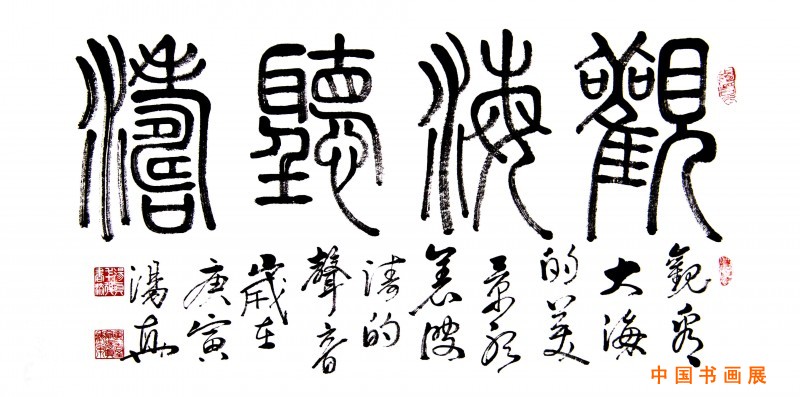 觀海聽濤
觀看
大海
的美
景聽
着波
濤的
聲音
歲在
庚寅
中国书画展